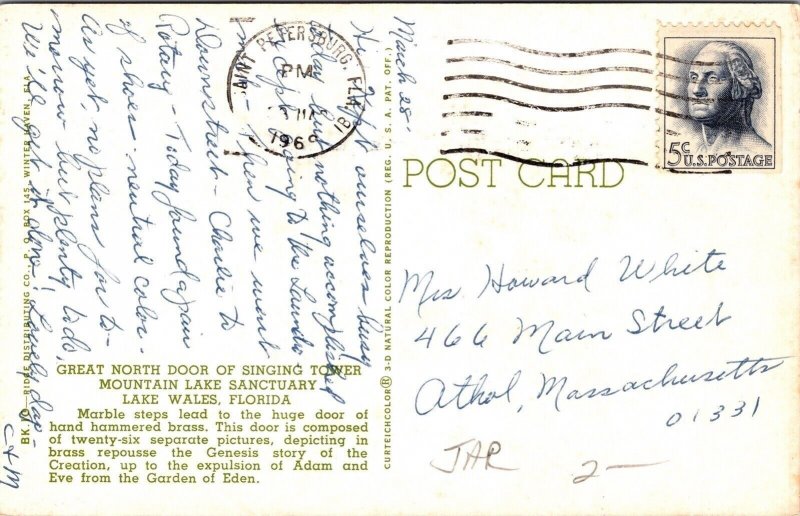 March 28-
Hi - Kept ourselves busy
today but nothing accomplished
except going to the Laundro
mat - Then we went
Downstreet - Charlie to
Rotary - Today found again
of shoes - neutral color -
As yet, no plans for to-
morrow but plenty to do,
We'll get it done! Lovely day -
C & M
SAINT PETERSBURG, FLA
PM
196
5¢
U.S. POSTAGE
POST CARD
Mrs. Howard White
466 Main Street
Athol, Massachusetts
01331
JAR 2 —
GREAT NORTH DOOR OF SINGING TOWER
MOUNTAIN LAKE SANCTUARY
LAKE WALES, FLORIDA
Marble steps lead to the huge door of
hand hammered brass. This door is composed
of twenty-six separate pictures, depicting in
brass repousse the Genesis story of the
Creation, up to the expulsion of Adam and
Eve from the Garden of Eden.
DISTRIBUTING CO., P. O. BOX 145, WINTER HAVEN, FLA.
CURTEICHCOLOR® 3-D NATURAL COLOR REPRODUCTION (REG. U. S. A. PAT. OFF.)